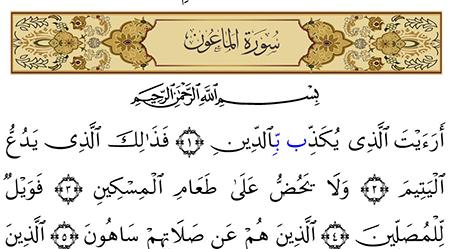 سُورَةُ الْمَاعُونِ
بِسْمِ اللَّهِ الرَّحْمَٰنِ الرَّحِيمِ
أَرَءَيْتَ الَّذِى يُكَذِّب بِّالدِّينِ ﴿١﴾ فَذَٰلِكَ الَّذِى يَدُعُّ
الْيَتِيمَ ﴿٢﴾ وَلَا يَحُضُّ عَلَىٰ طَعَامِ الْمِسْكِينِ ﴿٣﴾ فَوَيْلٌ
لِّلْمُصَلِّينَ ﴿٤﴾ الَّذِينَ هُمْ عَن صَلَاتِهِمْ سَاهُونَ ﴿٥﴾ الَّذِينَ